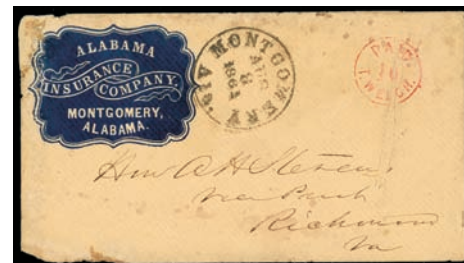 ALABAMA
INSURANCE
COMPANY,
MONTGOMERY,
ALABAMA.
MONTGOMERY Ala.
8
1861
PAID
10
Hon A H Stevens
Richmond
Va